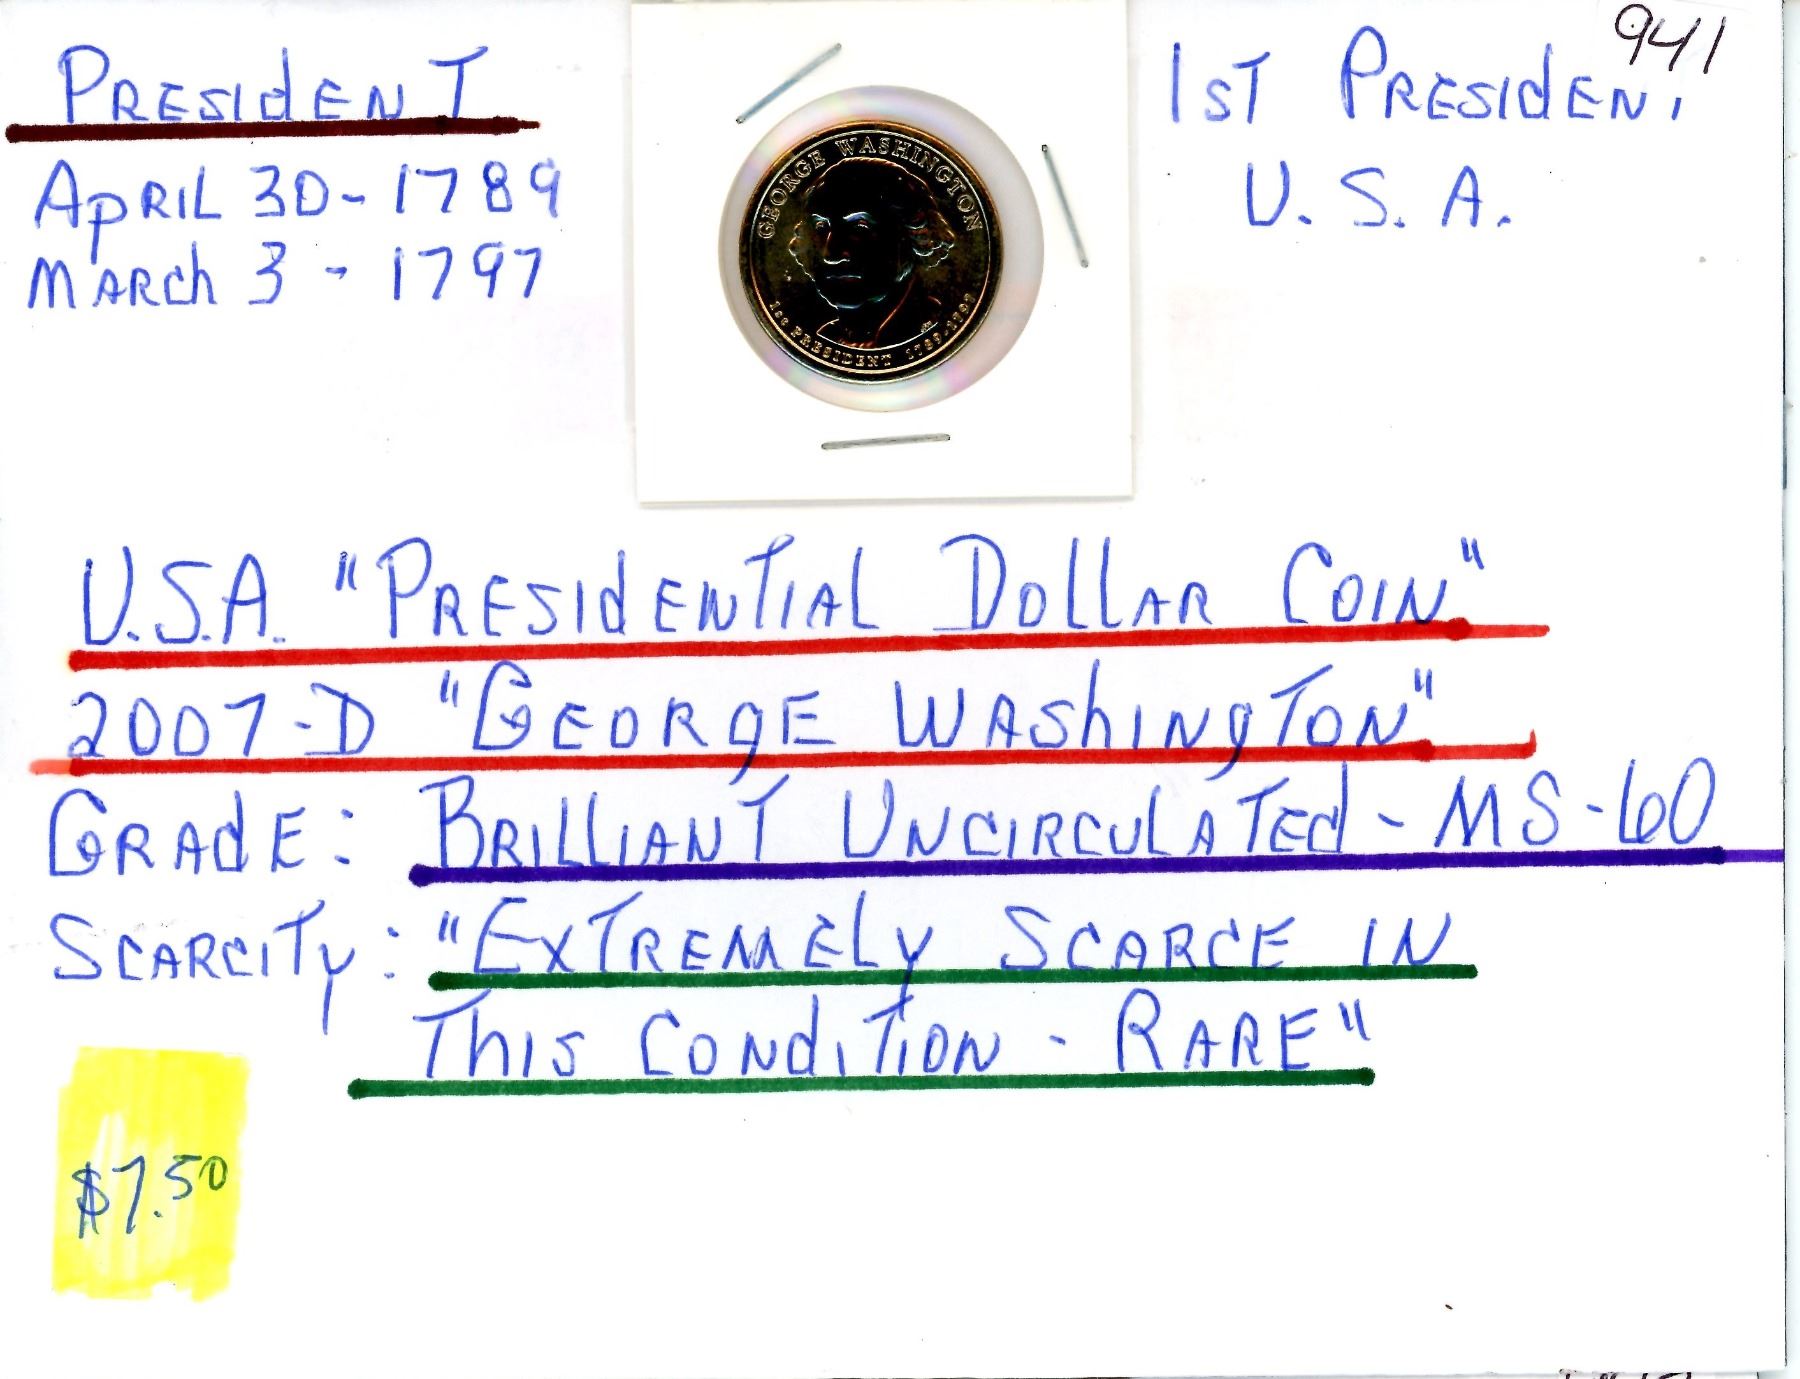 941
PRESIDENT
APRIL 30-1789
MARCH 3-1797
GEORGE WASHINGTON
1st PRESIDENT 1789-1797
1ST PRESIDENT
U.S.A.
U.S.A. "PRESIDENTIAL DOLLAR COIN"
2007-D "GEORGE WASHINGTON"
GRADE: BRILLIANT UNCIRCULATED - MS-60
SCARCITY: "EXTREMELY SCARCE IN
THIS CONDITION - RARE"
$7.50